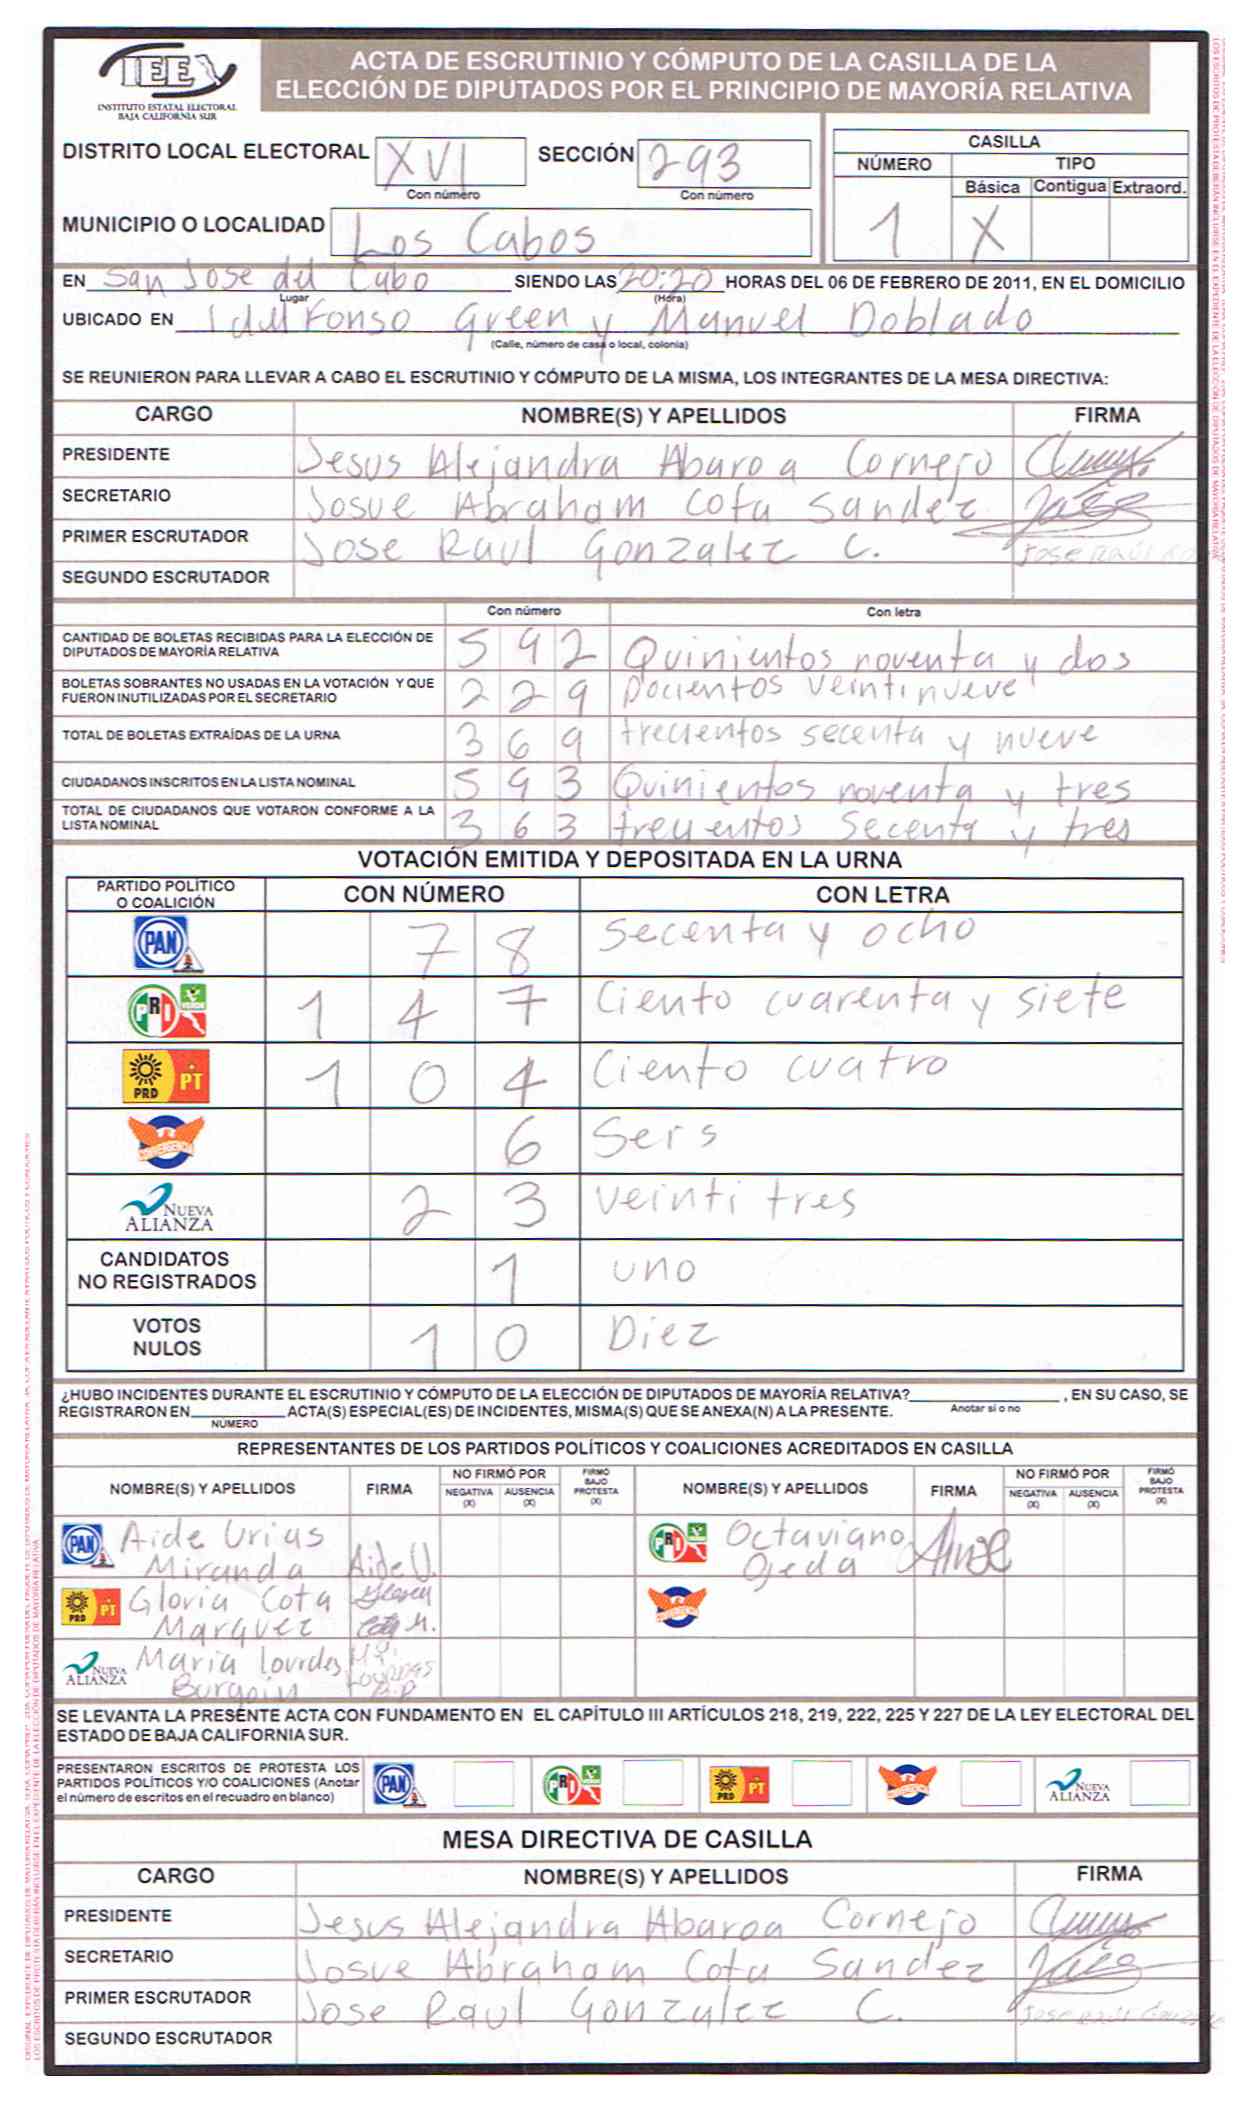 IEE
INSTITUTO ESTATAL ELECTORAL
BAJA CALIFORNIA SUR
ACTA DE ESCRUTINIO Y CÓMPUTO DE LA CASILLA DE LA
ELECCIÓN DE DIPUTADOS POR EL PRINCIPIO DE MAYORÍA RELATIVA
DISTRITO LOCAL ELECTORAL XVI SECCIÓN 293
Con número Con número
CASILLA
NÚMERO TIPO
Básica Contigua Extraord.
1 X
MUNICIPIO O LOCALIDAD Los Cabos
EN San Jose del Cabo SIENDO LAS 20:20 HORAS DEL 06 DE FEBRERO DE 2011, EN EL DOMICILIO
Lugar (Hora)
UBICADO EN Idelfonso Green y Manuel Doblado
(Calle, número de casa o local, colonia)
SE REUNIERON PARA LLEVAR A CABO EL ESCRUTINIO Y CÓMPUTO DE LA MISMA, LOS INTEGRANTES DE LA MESA DIRECTIVA:
CARGO NOMBRE(S) Y APELLIDOS FIRMA
PRESIDENTE Jesus Alejandra Abaroa Cornejo
SECRETARIO Josue Abraham Cota Sandez
PRIMER ESCRUTADOR Jose Raul Gonzalez C.
SEGUNDO ESCRUTADOR
Con número Con letra
CANTIDAD DE BOLETAS RECIBIDAS PARA LA ELECCIÓN DE
DIPUTADOS DE MAYORÍA RELATIVA 592 Quinientos noventa y dos
BOLETAS SOBRANTES NO USADAS EN LA VOTACIÓN Y QUE
FUERON INUTILIZADAS POR EL SECRETARIO 229 Docientos veintinueve
TOTAL DE BOLETAS EXTRAÍDAS DE LA URNA 369 trecientos secenta y nueve
CIUDADANOS INSCRITOS EN LA LISTA NOMINAL 593 Quinientos noventa y tres
TOTAL DE CIUDADANOS QUE VOTARON CONFORME A LA
LISTA NOMINAL 363 trecientos secenta y tres
VOTACIÓN EMITIDA Y DEPOSITADA EN LA URNA
PARTIDO POLÍTICO
O COALICIÓN CON NÚMERO CON LETRA
PAN 78 Secenta y ocho
PRI VERDE 147 Ciento cuarenta y siete
PRD PT 104 Ciento cuatro
CONVERGENCIA 6 Seis
NUEVA ALIANZA 23 veinti tres
CANDIDATOS
NO REGISTRADOS 1 uno
VOTOS
NULOS 10 Diez
¿HUBO INCIDENTES DURANTE EL ESCRUTINIO Y CÓMPUTO DE LA ELECCIÓN DE DIPUTADOS DE MAYORÍA RELATIVA? , EN SU CASO, SE
Anotar sí o no
REGISTRARON EN ACTA(S) ESPECIAL(ES) DE INCIDENTES, MISMA(S) QUE SE ANEXA(N) A LA PRESENTE.
NÚMERO
REPRESENTANTES DE LOS PARTIDOS POLÍTICOS Y COALICIONES ACREDITADOS EN CASILLA
NOMBRE(S) Y APELLIDOS FIRMA NO FIRMÓ POR NEGATIVA (X) AUSENCIA (X) FIRMÓ BAJO PROTESTA (X) NOMBRE(S) Y APELLIDOS FIRMA NO FIRMÓ POR NEGATIVA (X) AUSENCIA (X) FIRMÓ BAJO PROTESTA (X)
PAN Aide Urias Miranda Aide U. PRI Octaviano Ojeda
PRD PT Gloria Cota Marquez
NUEVA ALIANZA Maria Lourdes Burgoin
SE LEVANTA LA PRESENTE ACTA CON FUNDAMENTO EN EL CAPÍTULO III ARTÍCULOS 218, 219, 222, 225 Y 227 DE LA LEY ELECTORAL DEL
ESTADO DE BAJA CALIFORNIA SUR.
PRESENTARON ESCRITOS DE PROTESTA LOS
PARTIDOS POLÍTICOS Y/O COALICIONES (Anotar
el número de escritos en el recuadro en blanco)
PAN PRI VERDE PRD PT NUEVA ALIANZA
MESA DIRECTIVA DE CASILLA
CARGO NOMBRE(S) Y APELLIDOS FIRMA
PRESIDENTE Jesus Alejandra Abaroa Cornejo
SECRETARIO Josue Abraham Cota Sandez
PRIMER ESCRUTADOR Jose Raul Gonzalez C.
SEGUNDO ESCRUTADOR